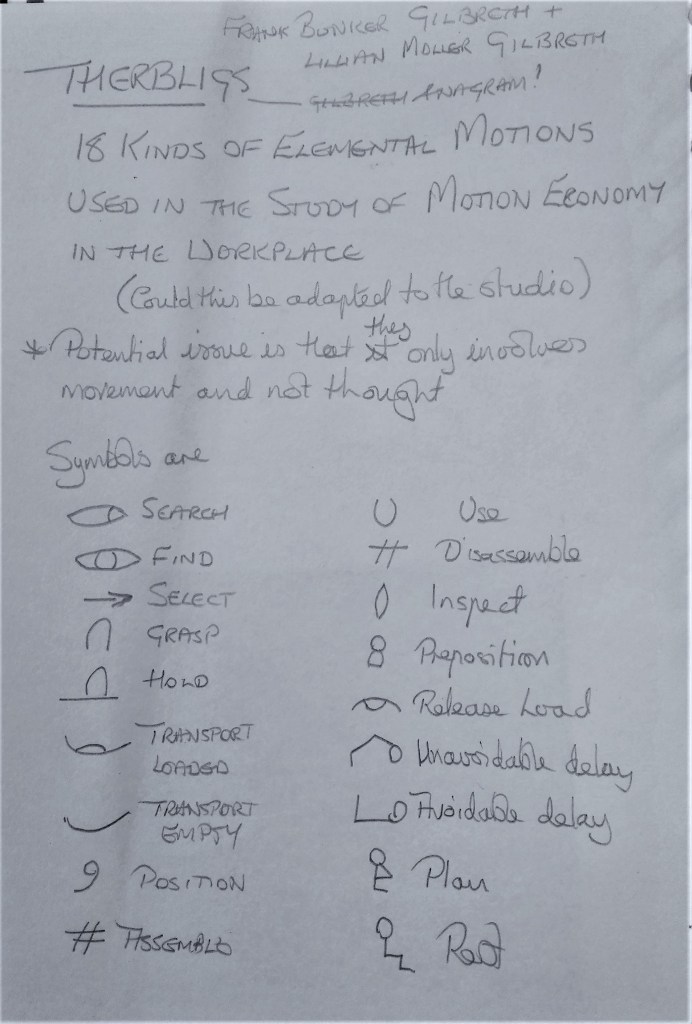 FRANK BUNKER GILBRETH +
LILLIAN MOLLER GILBRETH
THERBLIGS
GILBRETH ANAGRAM!
18 KINDS OF ELEMENTAL MOTIONS
USED IN THE STUDY OF MOTION ECONOMY
IN THE WORKPLACE
(Could this be adapted to the studio)
* Potential issue is that they only involves
movement and not thought
Symbols are
SEARCH
FIND
SELECT
GRASP
HOLD
TRANSPORT
LOADED
TRANSPORT
EMPTY
POSITION
ASSEMBLE
Use
Disassemble
Inspect
Preposition
Release Load
Unavoidable delay
Avoidable delay
Plan
Rest